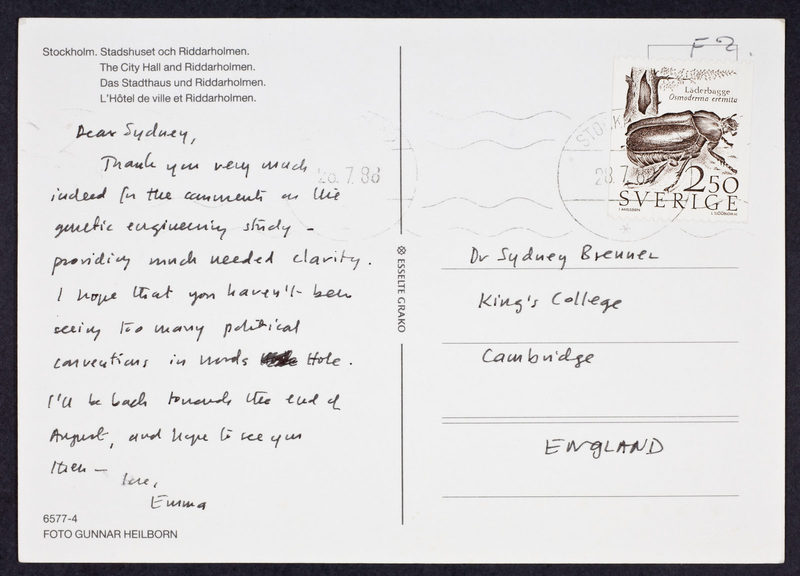 Stockholm. Stadshuset och Riddarholmen.
The City Hall and Riddarholmen.
Das Stadthaus und Riddarholmen.
L'Hôtel de ville et Riddarholmen.
Dear Sydney,
Thank you very much
indeed for the comments on the
genetic engineering study –
providing much needed clarity.
I hope that you haven't been
seeing too many political
conventions in Woods Hole.
I'll be back towards the end of
August, and hope to see you
then –
love,
Emma
6577-4
FOTO GUNNAR HEILBORN
ESSELTE GRAKO
F2.
Läderbagge
Osmoderma eremita
2.50
SVERIGE
STOCK
28.7.88
28.7.88
Dr Sydney Brenner
King's College
Cambridge
ENGLAND